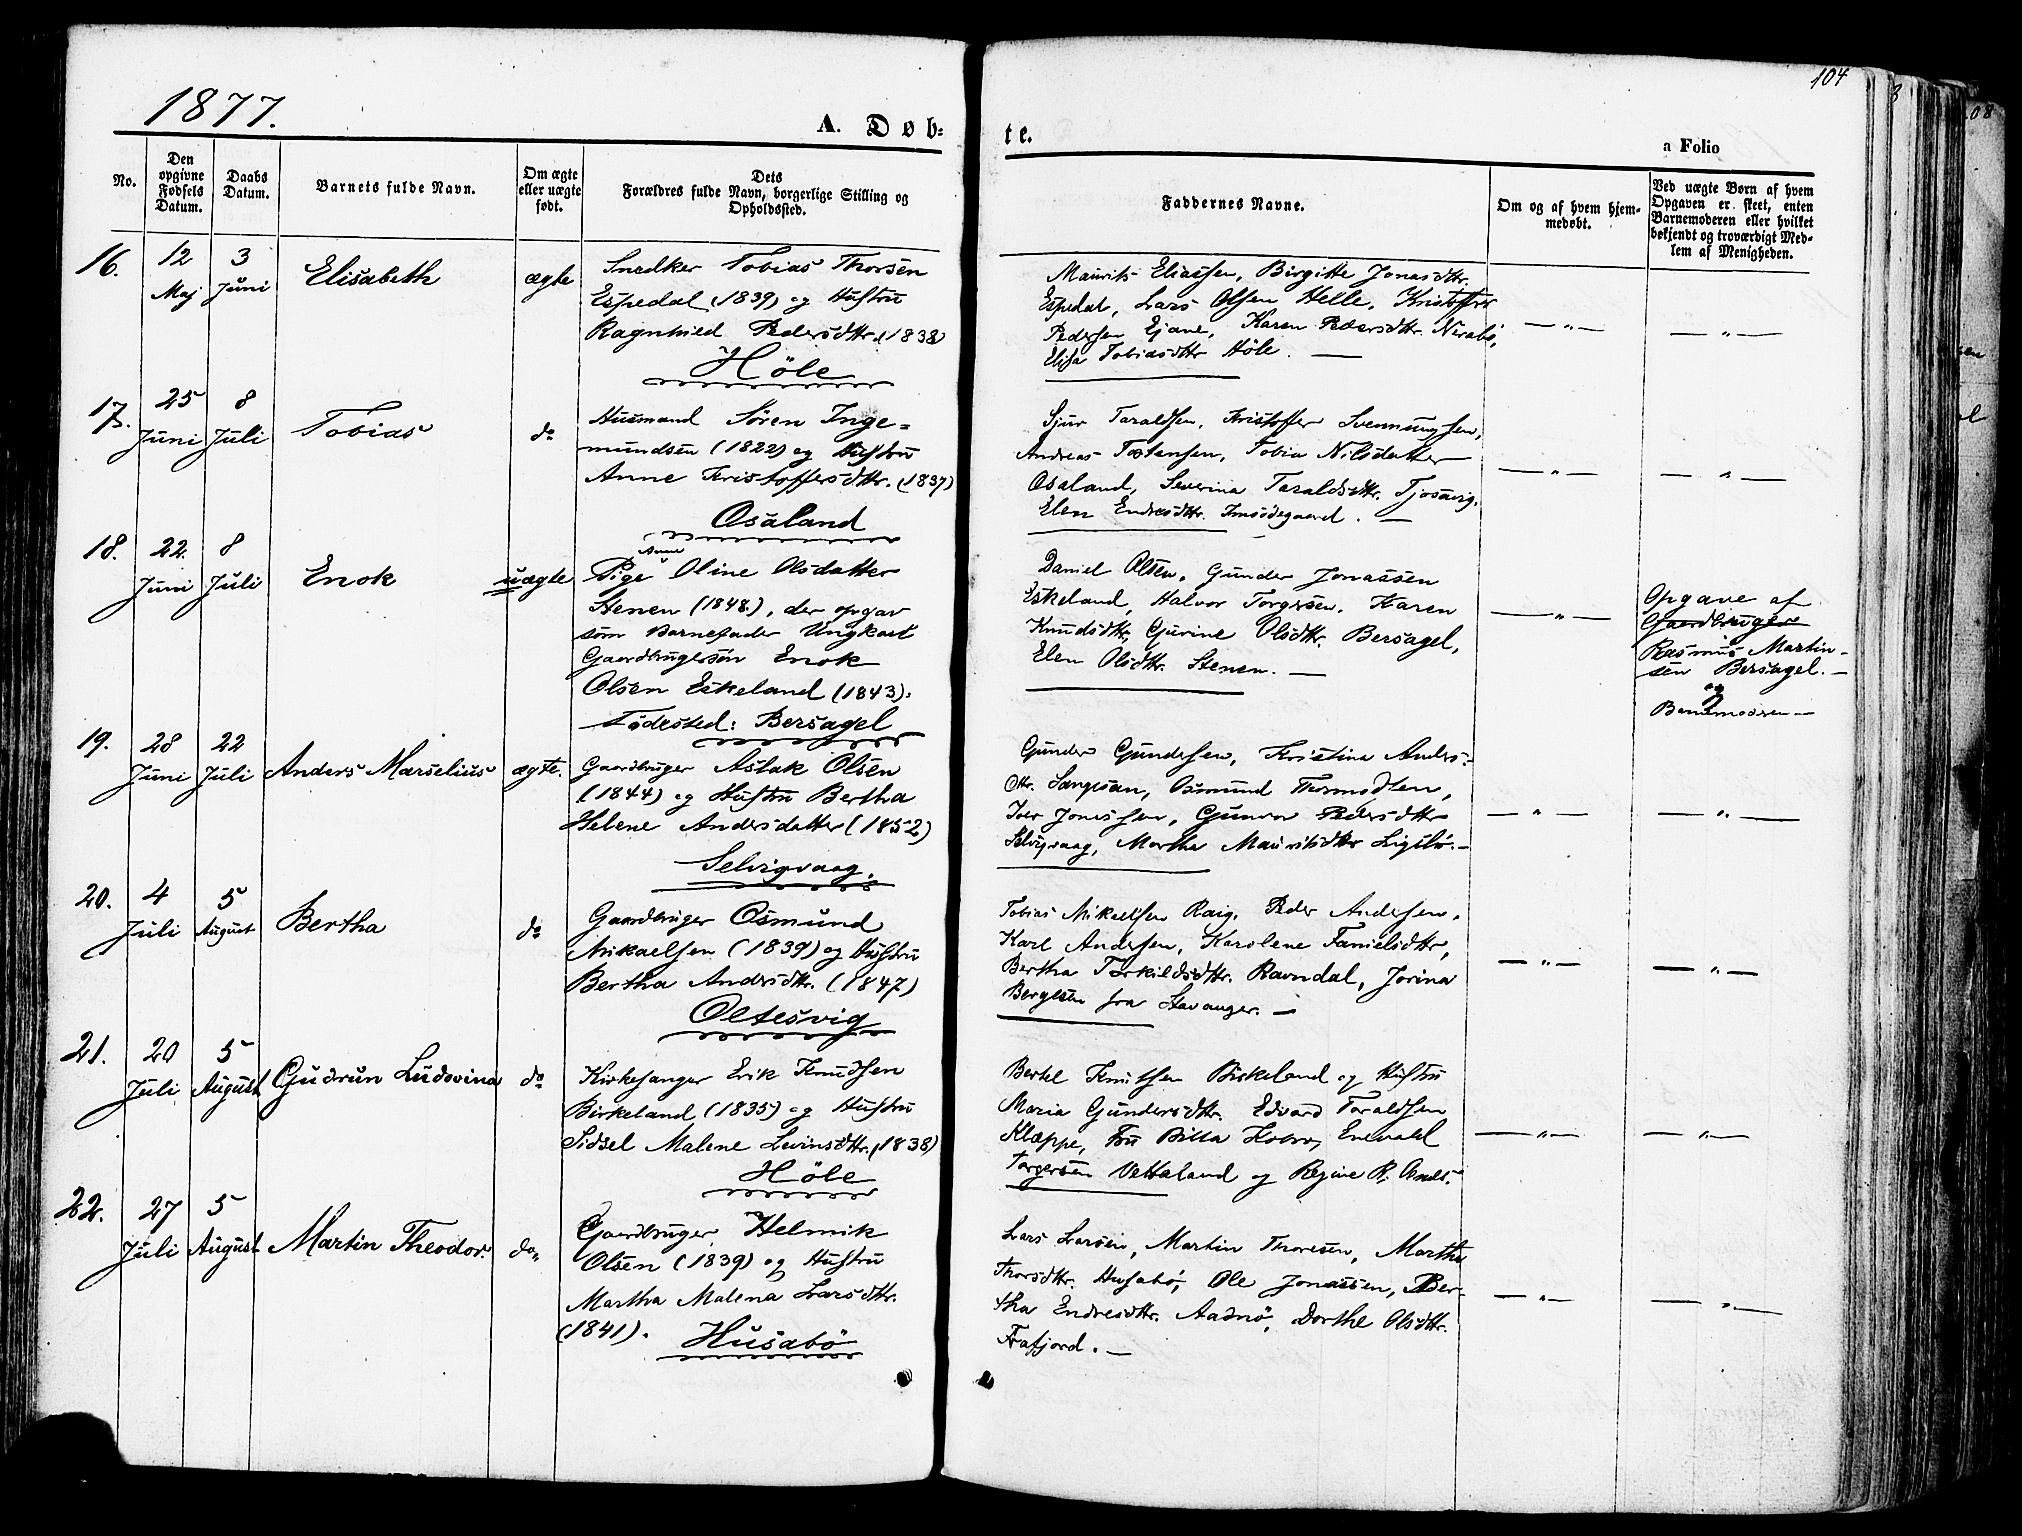 104
1877.
A. Døb-
te.
a Folio
No.
Den opgivne Fødsels Datum.
Daabs Datum.
Barnets fulde Navn.
Om ægte eller uægte født.
Dets Forældres fulde Navn, borgerlige Stilling og Opholdssted.
Faddernes Navne.
Om og af hvem hjemmedøbt.
Ved uægte Børn af hvem Opgaven er skeet, enten Barnemoderen eller hvilket bekjendt og troværdigt Medlem af Menigheden.
16.
12 Maj
3 Juni
Elisabeth
ægte
Snedker Tobias Thorsen
Espedal (1839) og Hustru
Ragnhild Pedersdttr. (1838)
Höle
Maurits Eliassen, Birgitte Jonasdttr.
Espedal, Lars Olsen Helle, Kristoffer
Pedersen Ejane, Karen Pedersdttr. Nerabö,
Elisa Tobiasdttr Höle. —
— " —
— " —
17.
25 Juni
8 Juli
Tobias
do
Husmand Sören Inge-
mundsen (1822) og Hustru
Anne Kristoffersdttr. (1837)
Osaland
Sjur Taraldsen, Kristoffer Svennungsen,
Andreas Tostensen, Tobia Nilsdatter
Osaland, Severina Taraldsdttr. Tjosavig,
Elen Endresdttr. Imsodegaard. —
— " —
— " —
18.
22. Juni
8 Juli
Enok
uægte
Anne
Pige Oline Olsdatter
Stenen (1848.), der opgav
som Barnefader Ungkarl
Gaardbrugersön Enok
Olsen Eskeland (1843).
Födested: Bersagel
Daniel Olsen, Gunder Jonassen
Eskeland, Halvor Torgersen, Karen
Knudsdttr, Gurine Olsdttr. Bersagel,
Elen Olsdttr. Stenen. —
— " —
Opgave af
Gaardbruger
Rasmus Martin-
sen Bersagel. —
og
Barnemoderen —
19.
28 Juni
22 Juli
Anders Marselius
ægte.
Gaardbruger Aslak Olsen
(1844) og Hustru Bertha
Helene Andersdatter (1852)
Selvigvaag.
Gunder Gundersen, Kristina Anders-
dttr. Sangesan, Osmund Thormodsen,
Iver Jonassen, Gunvor Pedersdttr
Selvigvaag, Martha Mauritsdttr Ligelö. —
— " —
— " —
20.
4 Juli
5 August
Bertha
do
Gaardbruger Osmund
Mikaelsen (1839) og Hustru
Bertha Andersdttr. (1847)
Oltesvig
Tobias Mikaelsen Raig, Peder Andersen,
Karl Andersen, Karolene Tanielsdttr,
Bertha Torkildsdttr. Ravndal, Jorina
Bergesen fra Stavanger. —
— " —
— " —
21.
20 Juli
5 August
Gudrun Ludovina
do
Kirkesanger Erik Knudsen
Birkeland (1835) og Hustru
Sidsel Malene Levinsdttr. (1838)
Höle
Bertel Knutsen Birkeland og Hustru
Maria Gundersdttr. Edvard Taraldsen
Klæppe, Fru Billa Holm, Enevald
Torgersen Vettaland og Regine R. Aads.
— " —
— " —
22.
27 Juli
5 August
Martin Theodor.
do
Gaardbruger Helmik
Olsen (1839) og Hustru
Martha Malena Larsdttr.
(1841).
Husabö
Lars Larsen, Martin Thoresen, Martha
Thorsdttr. Husabö, Ole Jonassen, Ber-
tha Endresdttr. Aadnö, Dorthe Olsdttr.
Frafjord. —
— " —
— " —